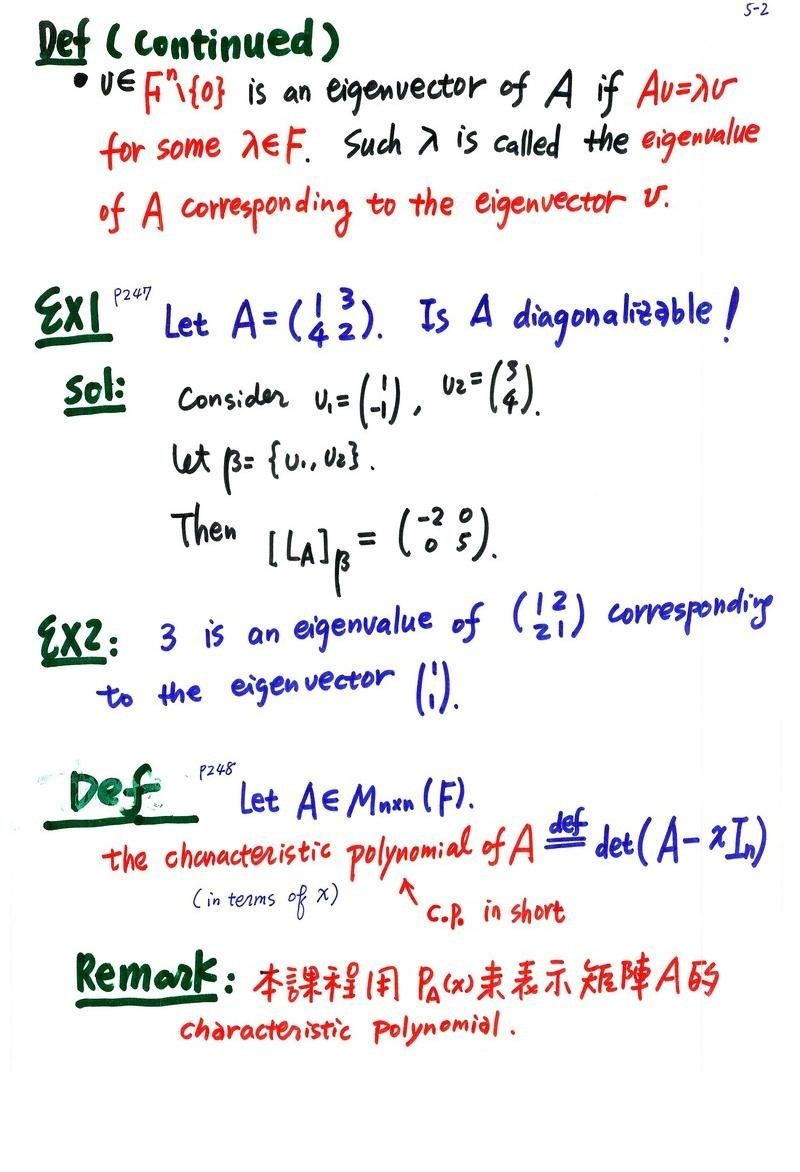 5-2
Def (Continued)
• v∈ Fⁿ\{0} is an eigenvector of A if Av=λv
for some λ∈F. Such λ is called the eigenvalue
of A corresponding to the eigenvector v.
EX1 P247 Let A = (1 3; 4 2). Is A diagonalizable!
Sol: Consider v₁ = (1; -1), v₂ = (3; 4).
Let β = {v₁, v₂}.
Then [L_A]_β = (-2 0; 0 5).
EX2: 3 is an eigenvalue of (1 2; 2 1) corresponding
to the eigenvector (1; 1).
Def P248 Let A∈ Mₙₓₙ(F).
the characteristic polynomial of A def= det(A - xIₙ)
(in terms of x) ↖ C.P. in short
Remark: 本課程用 P_A(x) 來表示矩陣 A 的
characteristic polynomial.